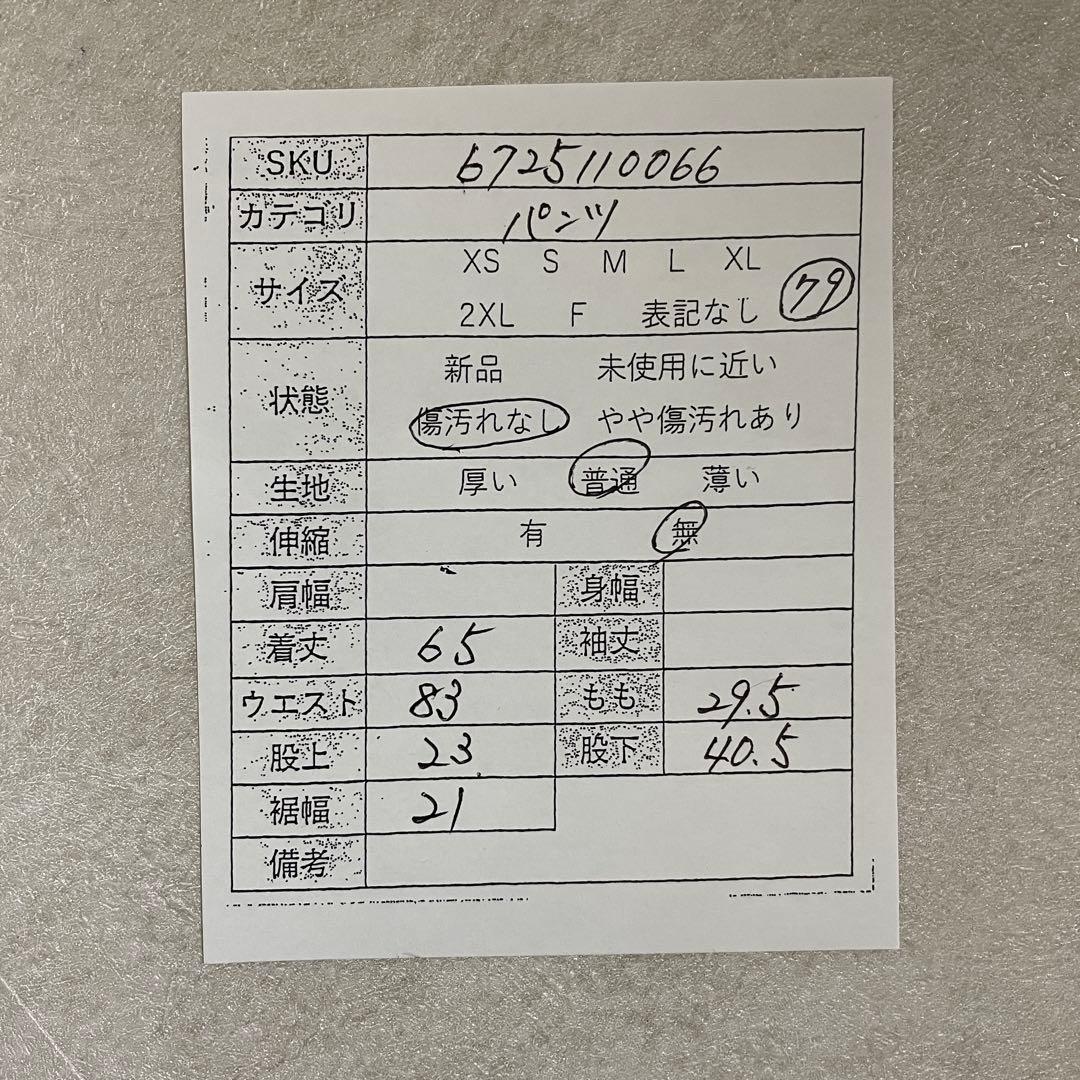 SKU 6725110066
カテゴリ パンツ
サイズ XS S M L XL
2XL F 表記なし 79
状態 新品 未使用に近い
傷汚れなし やや傷汚れあり
生地 厚い 普通 薄い
伸縮 有 無
肩幅 身幅
着丈 65 袖丈
ウエスト 83 もも 29.5
股上 23 股下 40.5
裾幅 21
備考